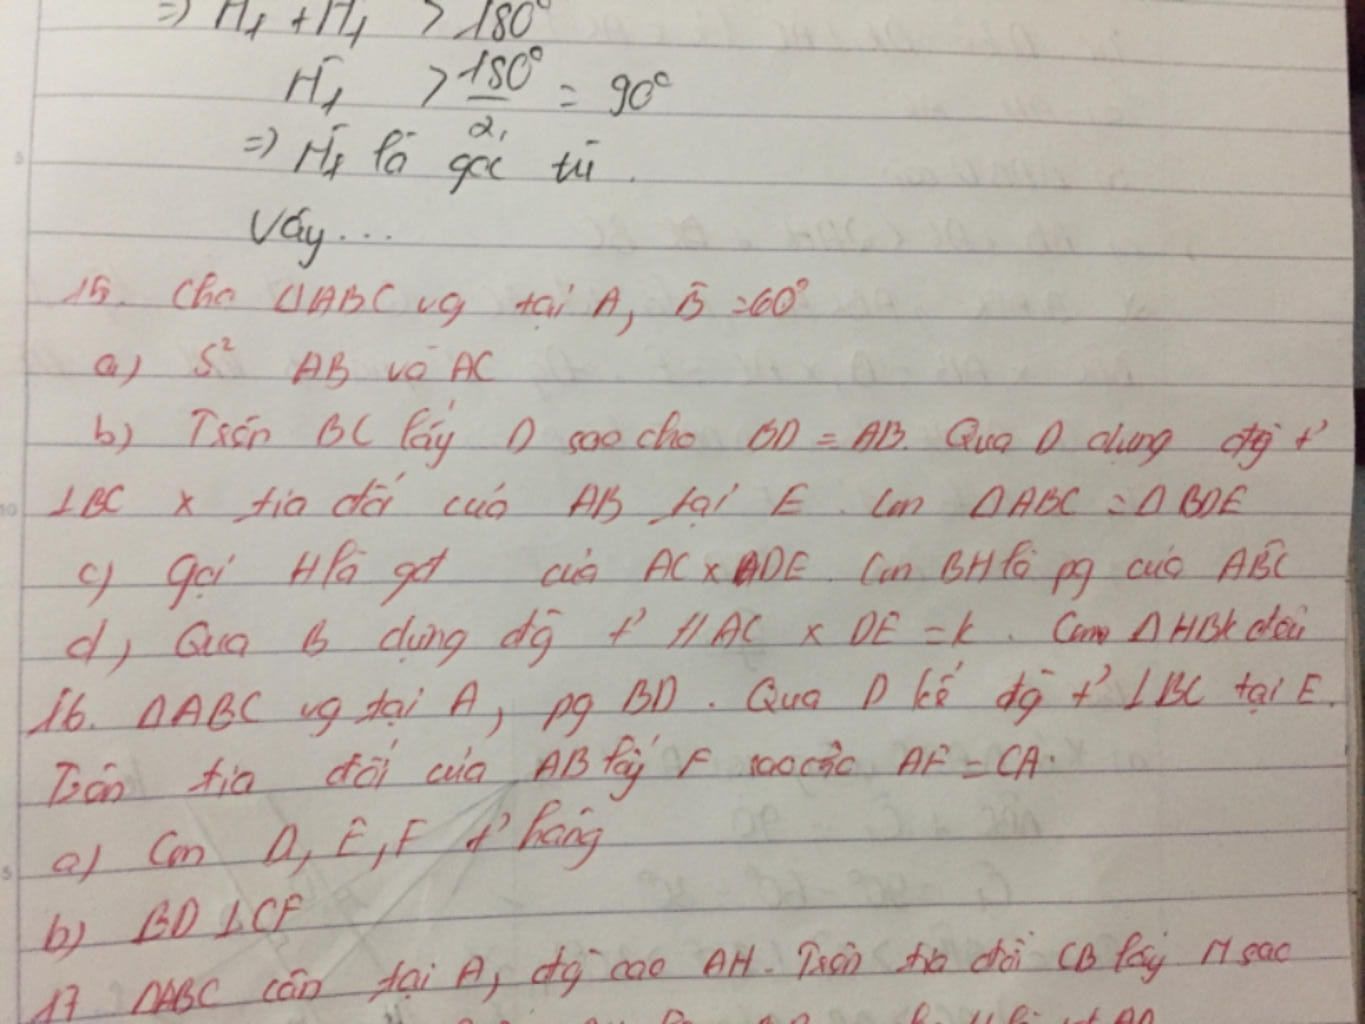 => Ĥ₁ + Ĥ₁ > 180°
Ĥ₁ > 180°/2 = 90°
=> Ĥ₁ là góc tù.
Vậy...
15. Cho △ABC vg tại A, B̂ = 60°
a) S² AB và AC
b) Trên BC lấy D sao cho BD = AB. Qua D dựng đg t'
⊥BC x tia đối của AB tại E. Cm △ABC = △BDE
c) Gọi H là gđ của AC x DE. Cm BH là pg của AB̂C
d) Qua B dựng đg t' // AC x DE = K. Cm △HBK đều
16. △ABC vg tại A, pg BD. Qua D kẻ đg t' ⊥BC tại E.
Trên tia đối của AB lấy F sao cho AF = CA.
a) Cm D, E, F t' hàng
b) BD ⊥ CF
17 △ABC cân tại A, đg cao AH. Trên tia đối CB lấy M sao